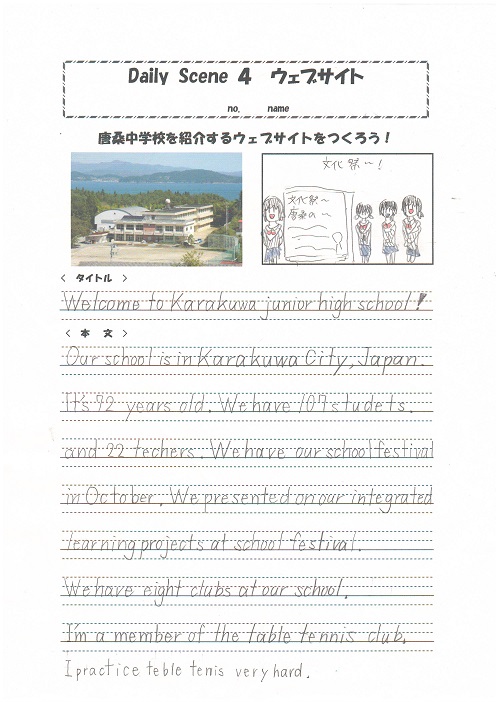 Daily Scene 4 ウェブサイト
no. name
唐桑中学校を紹介するウェブサイトをつくろう！
文化祭〜！
文化祭〜
唐桑の〜
＜ タイトル ＞
Welcome to Karakuwa junior high school!
＜ 本 文 ＞
Our school is in Karakuwa City, Japan.
It's 72 years old. We have 107 studets.
and 22 techers. We have our school festival
in October. We presented on our integrated
learning projects at school festival.
We have eight clubs at our school.
I'm a member of the table tennis club.
I practice teble tenis very hard.